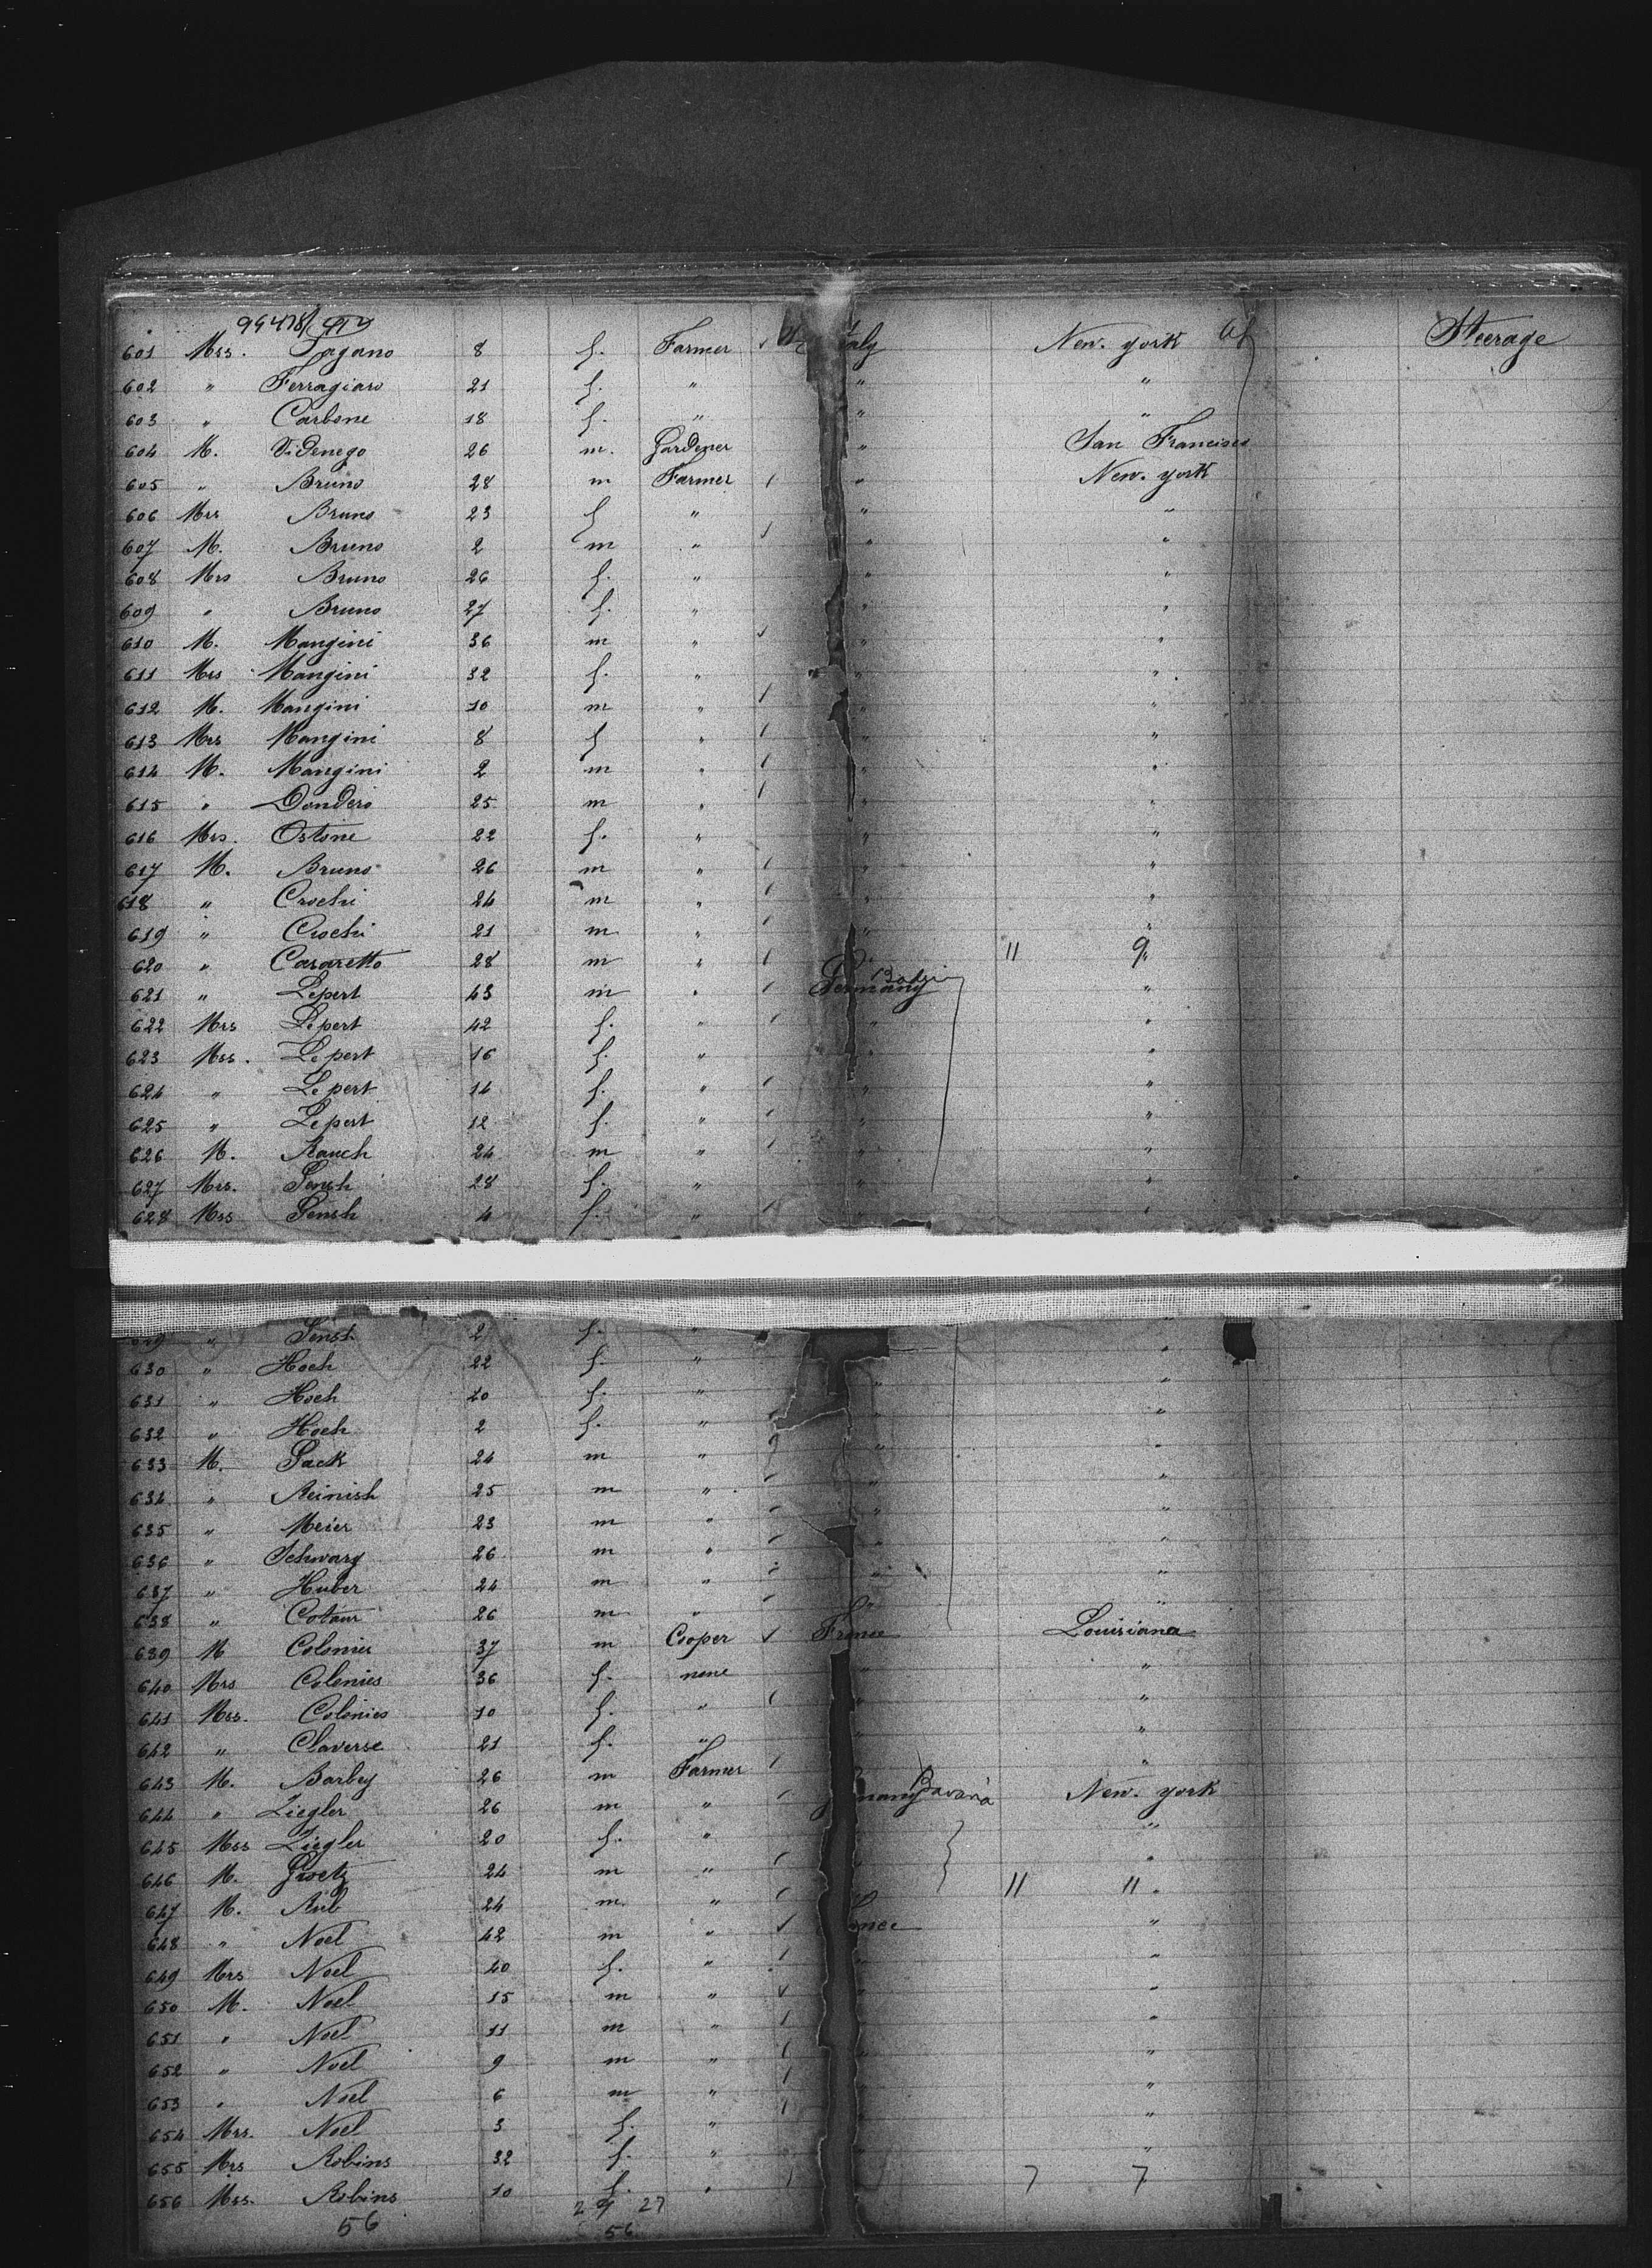 99478
601 Mss. Pagano 8 f. Farmer Italy New. york Steerage
602 " Ferragiaro 21 f. " " "
603 " Carbone 18 f. " " "
604 M. Videnego 26 m. Gardener " San Francisco
605 " Bruno 28 m Farmer " New. york
606 Mrs Bruno 23 f " " "
607 M. Bruno 2 m " " "
608 Mrs Bruno 26 f. " " "
609 " Bruno 27 f. " " "
610 M. Mangini 36 m " " "
611 Mrs Mangini 32 f. " " "
612 M. Mangini 10 m " " "
613 Mss Mangini 8 f " " "
614 M. Mangini 2 m " " "
615 " Dondero 25 m " " "
616 Mrs. Ostone 22 f. " " "
617 M. Bruno 26 m " " "
618 " Crochi 24 m " " "
619 " Crochi 21 m " " "
620 " Casaretto 28 m " " 11 9 "
621 " Lepert 43 m " Germany "
622 Mrs Lepert 42 f. " " "
623 Mss. Lepert 16 f. " " "
624 " Lepert 14 f. " " "
625 " Lepert 12 f. " " "
626 M. Rauch 24 m " " "
627 Mrs. Gensh 28 f. " " "
628 Mss Gensh 4 f. " " "
629 " Gensh 2 f. " "
630 " Hoch 22 f. " "
631 " Hoch 20 f. " " "
632 " Hoch 2 f. " " "
633 M. Sack 24 m " " "
634 " Reinish 25 m " " "
635 " Meier 23 m " " "
636 " Schwarz 26 m " " "
637 " Huber 24 m " " "
638 " Cotaur 26 m " " "
639 M Colonies 37 m Cooper France Louisiana
640 Mrs Colonies 36 f. none " "
641 Mss. Colonies 10 f. " " "
642 " Claverse 21 f. " " "
643 M. Barbey 26 m Farmer " "
644 " Ziegler 26 m " many Bavaria New. york
645 Mss Ziegler 20 f. " " "
646 M. Groetz 24 m " " "
647 M. 24 m. " 11 11 "
648 " Noel 42 m " ance "
649 Mrs Noel 40 f. " " "
650 M. Noel 15 m " " "
651 " Noel 11 m " " "
652 " Noel 9 m " " "
653 " Noel 6 m " " "
654 Mss. Noel 3 f. " " "
655 Mrs Robins 32 f. " "
656 Mss. Robins 10 f. " 7 7
56 29 27
56